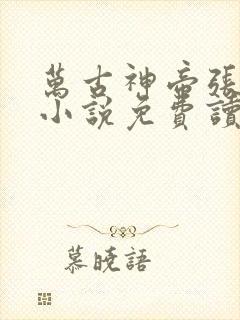 萬古神帝張
小說免費讀
慕曉語